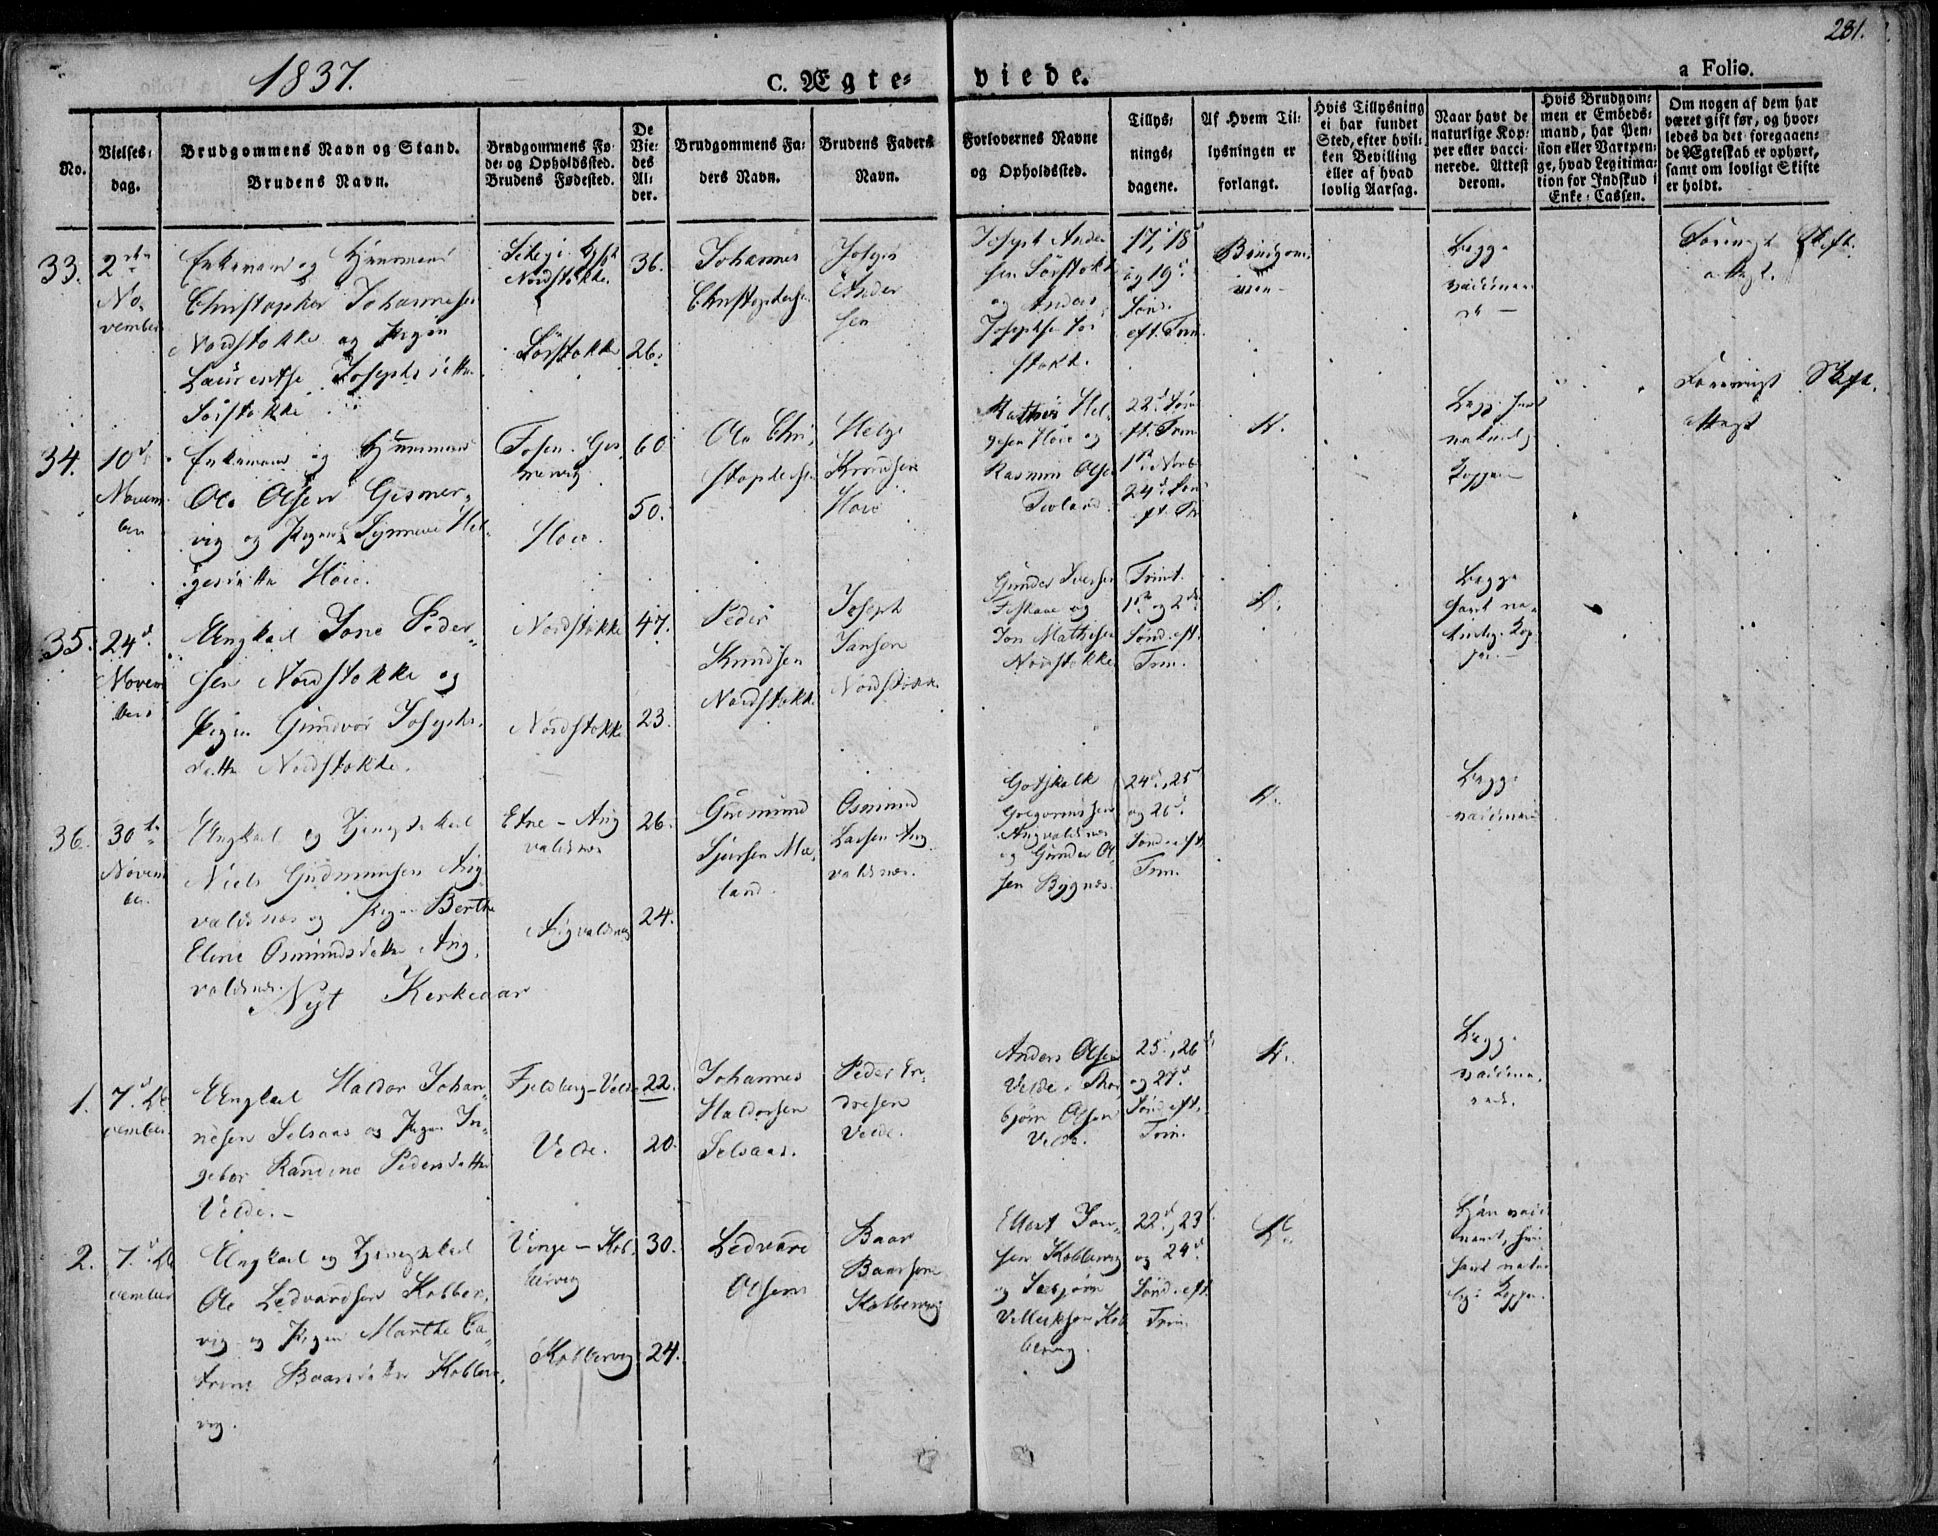 1837.
C. Ægte-viede.
231.
a Folio.
No.
Vielses-
dag.
Brudgommens Navn og Stand.
Brudens Navn.
Brudgommens Fø-
de- og Opholdssted.
Brudens Fødested.
De
Vie-
des
Al-
der.
Brudgommens Fa-
ders Navn.
Brudens Faders
Navn.
Forlovernes Navne
og Opholdssted.
Tillys-
nings-
dagene.
Af Hvem Til-
lysningen er
forlangt.
Hvis Tillysning
ei har fundet
Sted, efter hvil-
ken Bevilling
eller af hvad
lovlig Aarsag.
Naar havt de
naturlige Kop-
per eller vacci-
nerede. Attest
derom.
Hvis Brudgom-
men er Embeds-
mand, har Pen-
sion eller Vartpen-
ge, hvad Legitima-
tion for Indskud i
Enke-Cassen.
Om nogen af dem har
været gift før, og hvor-
ledes da det foregaaen-
de Ægteskab er ophørt,
samt om lovligt Skifte
er holdt.
33.
2den
No
vember
Enkemand og Huusmand
Christopher Johannesen
Nordstokke og Pigen
Laurentse Josephsdatter
Sørstokke
Nordstokke.
Sørstokke
36.
26.
Johannes
Christophersen
Joseph
Ander
sen
Joseph Ander
sen Sørstokke
og Anders
Josephsen Sør
stokke.
17, 18
og 19d
Sønd.
eft. Trin.
Brudgom
men
Begge
vaccinere
de
Skift.
34.
10d
Novem
ber
Enkemand og Huusmand
Ole Olsen Gismer-
vig og Pigen Synneve Hel-
gesdatter Høie.
Fosen. Gis
mervig
Høie.
60
50.
Ole Chri
stophersen
Helge
Knudsen
Høie
Mathis Hel-
gesen Høie og
Rasmus Olsen
22d Søn
ft. Trin
1ste Novb
24d Søn
ft. Tr
Begge havt
naturlig
Kopper
Skift.
35.
24d
Novem
ber
Ungkarl Jone Peder-
sen Nordstokke og
Pigen Gundvor Josephs-
datter Nordstokke.
Nordstokke
Nordstokke
47.
23.
Peder
Knudsen
Nordstokke
Joseph
Jansen
Nordstokke
Gunder Iversen
og
Jon Mathisen
Nordstokke
Trint.
1ste og 2den
Sønd. eft.
Trin.
D.
Begge
havt na-
turlig Kop-
per.
36.
30te
Novem
ber.
Ungkarl og
Niels Gudmunsen Aug
valdsnes og Pigen Berthe
Eline Osmundsdatter Aug
valdsnes.
Etne - Aug
valdsnes
Augvaldsnes
26.
24.
Gudmund
Sjursen Mæ-
land.
Osmund
Larsen Aug
valdsnes.
Gotskalk
Gregoriussen
Augvaldsnes
og Gunder Ol-
sen Bygnes.
24d, 25d
og 26d
Sønd. eft.
Trin.
D.
Begge
vaccine
Nyt Kirkeaar
1.
7d De
cember
Ungkarl Haldor Johan-
nesen Selsaas og Pigen In-
gebor Randine Pedersdatter
Velde.
Fjeldberg - Velde
Velde.
22.
20.
Johannes
Haldorsen
Selsaas.
Peder En-
dresen
Velde.
Anders Olsen
Velde. Thor
bjørn Olsen
Velde.
25d, 26d
og 27d
Sønd. eft.
Trin.
D.
Begge
vaccine-
rede.
2.
7d De
cember
Ungkarl og
Ole Ledvardsen Kobber-
vig og Pigen Marthe Ca-
trine Baarsdatter Kobber-
vig.
Vinje - Kob-
bervig
Kobbervig
30.
24.
Ledvard
Olsen
Baar
Baarsen
Kobbervig
Ellert Jon-
sen Kobbervig
og Torbjørn
Kob
bervig.
22d, 23d
og 24d
Sønd. eft.
Trin.
D.
Han vacci
neret, hun
havt natur
lige Kopper.